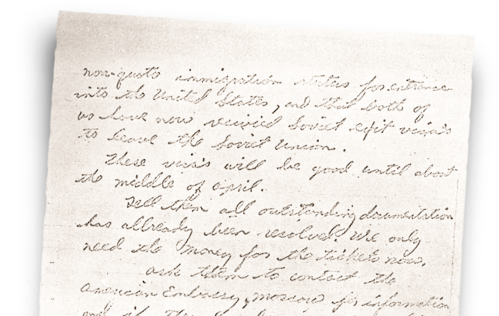 non-quoto immigration status for entrance
into the United States, and that both of
us have now recivied Soviet exit visia's
to leave the Soviet Union.
These visi's will be good until about
the middle of april.
Tell them all outstanding documentation
has allready been resolved. We only
need the money for the tickets now.
ask them to contact the
american Embassy, Moscow for information
and if they